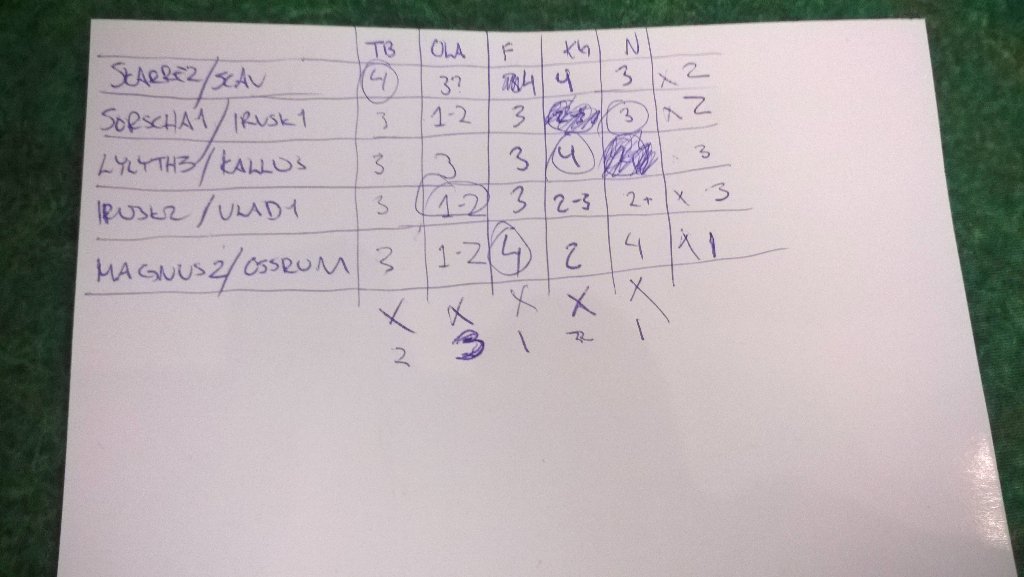 TB OLA F N
SKARRE2/SCAV 4 3? 4 4 3 x 2
SORSCHA1/IRUSK1 3 1-2 3 3 x 2
LYLYTH3/KALLUS 3 3 3 4 3
IRUSK2/VLAD1 3 1-2 3 2-3 2+ x 3
MAGNUS2/OSSRUM 3 1-2 4 2 4 x 1
X X X X X
2 3 1 1